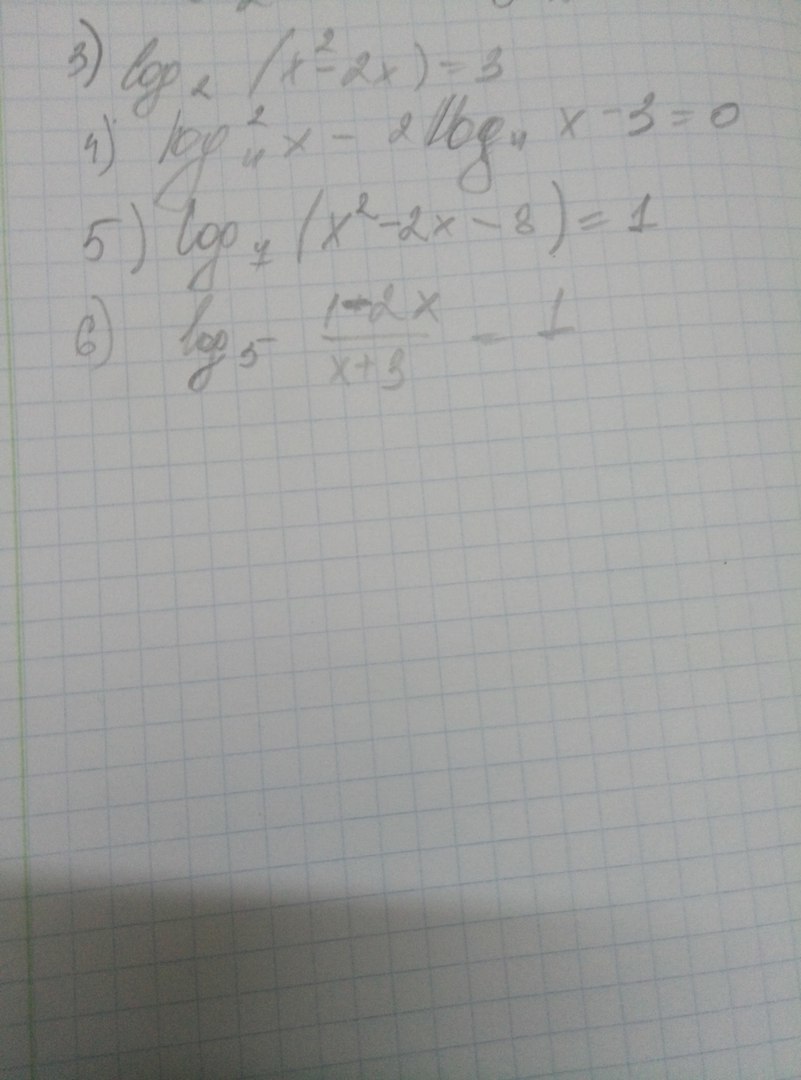 3) log₂ (x²-2x) = 3
4) log²₄ x - 2 log₄ x - 3 = 0
5) log₇ (x²-2x-8) = 1
6) log₅ (1-2x)/(x+3) = 1